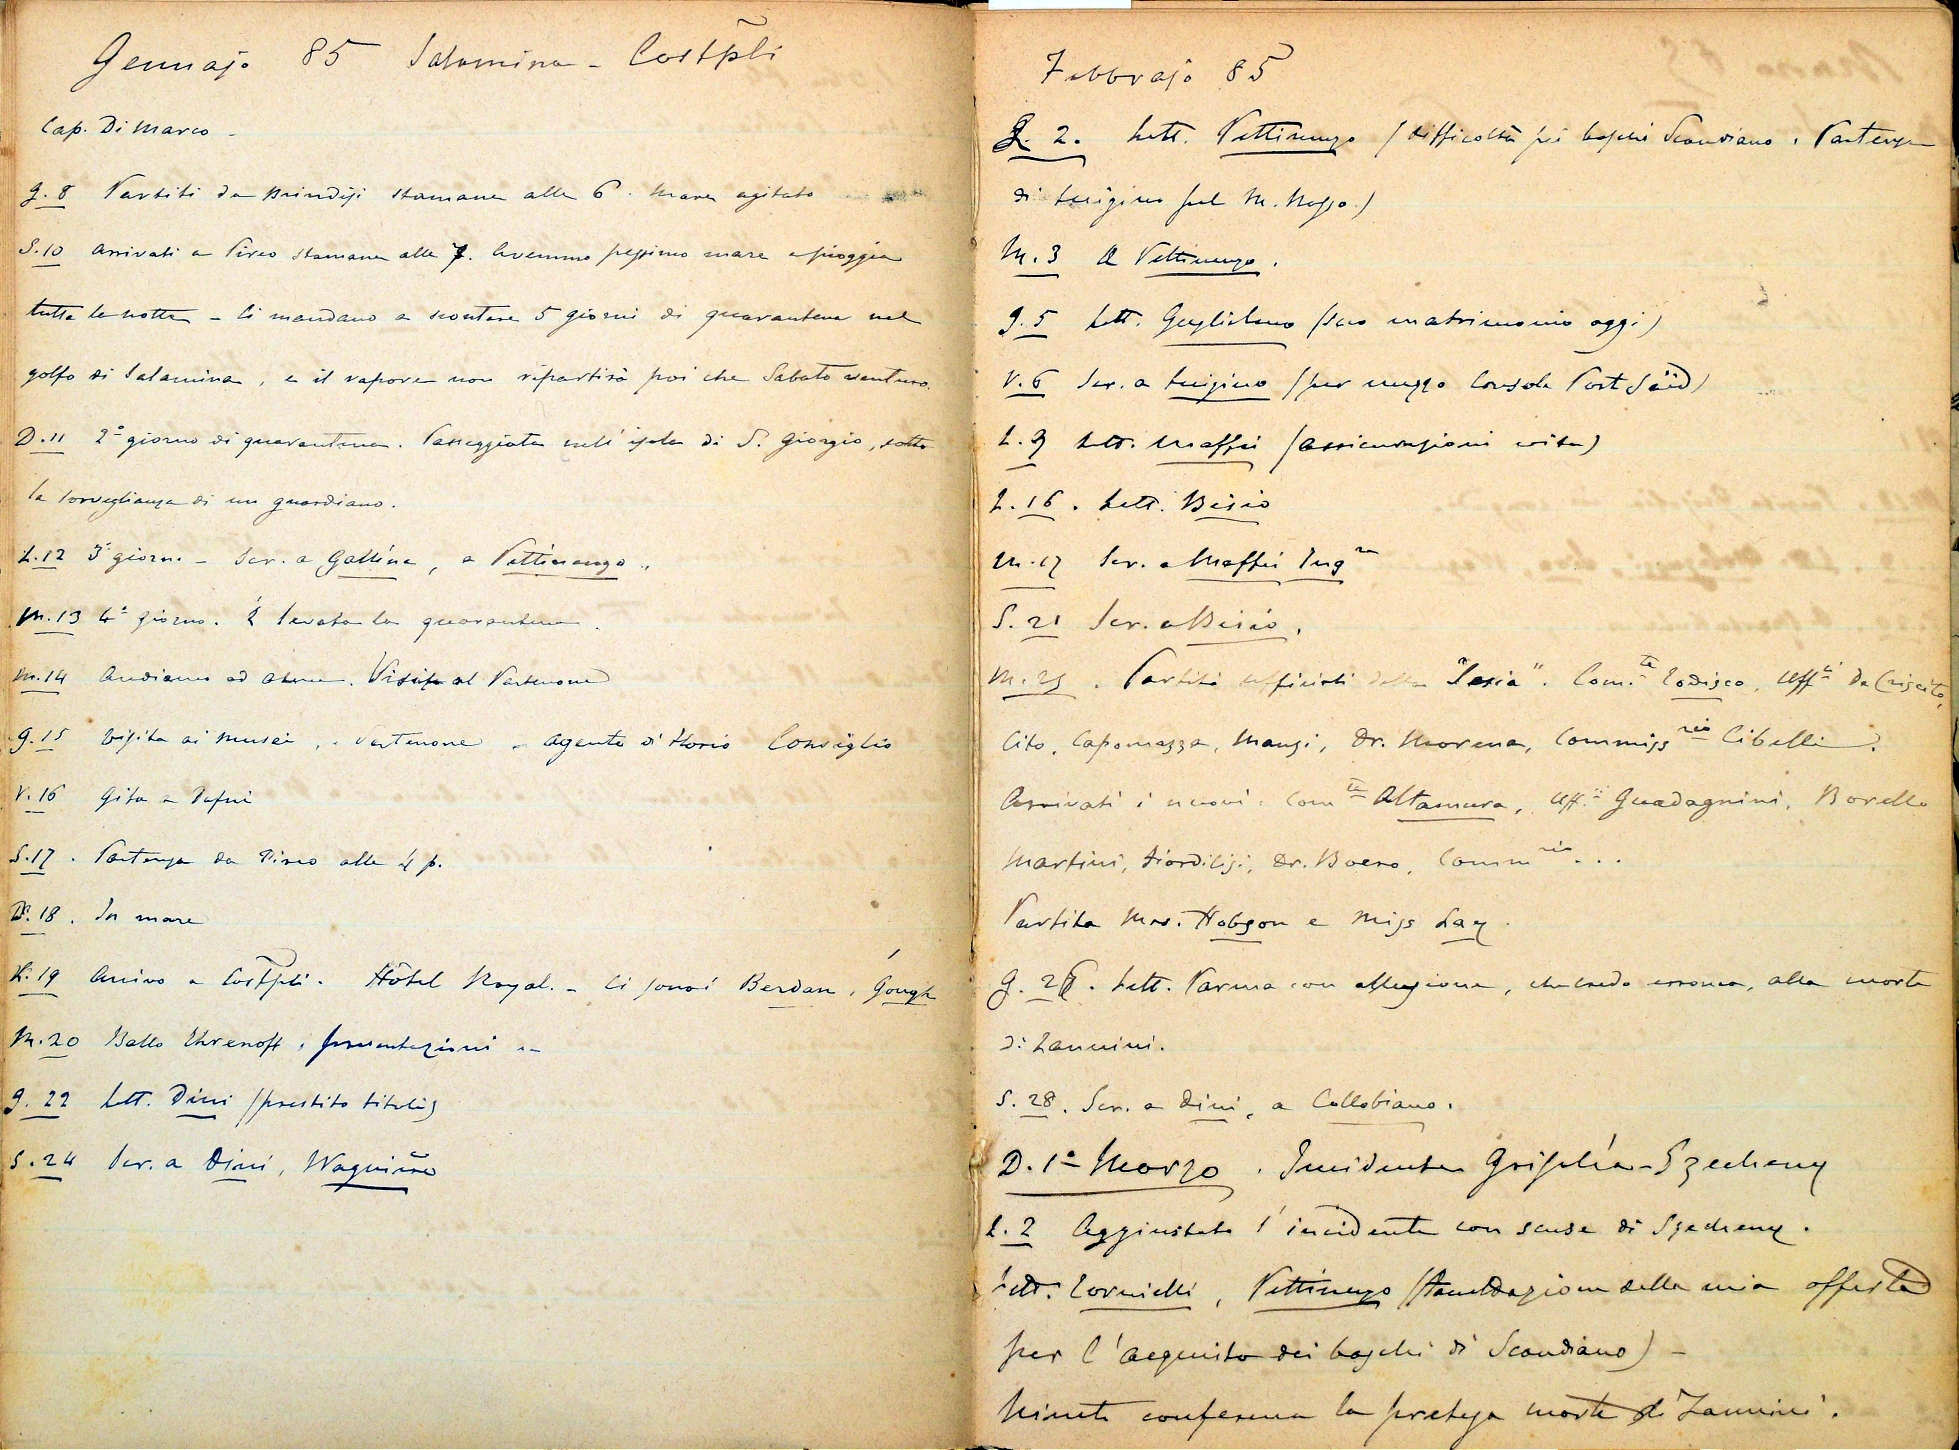 Gennajo 85 Salamina - Costpli
Cap. Di Marco -
G. 8 Partiti da Brindisi stamane alle 6. Mare agitato
S. 10 Arrivati a Pireo stamane alle 7. Avemmo pessimo mare e pioggia
tutta la notte - Ci mandano a scontare 5 giorni di quarantena nel
golfo di Salamina, e il vapore non ripartirà poi che Sabato venturo.
D. 11 2° giorno di quarantena. Passeggiata nell'isola di S. Giorgio, sotto
la sorveglianza di un guardiano.
L. 12 3° giorno - Scr. a Gallina, a Pettinengo.
M. 13 4° giorno. È levata la quarantena.
M. 14 Andiamo ad Atene. Visita al Partenone
G. 15 Visita ai Musei, Partenone agente di Florio Consiglio
V. 16 Gita a Dafni
S. 17. Partenza da Pireo alle 4 p.
D. 18. In mare
L. 19 Arrivo a Costpli. Hôtel Royal. - Ci sono i Berdan, Gough
M. 20 Ballo presentazioni
G. 22 Lett. Dini (prestito titoli)
S. 24 Scr. a Dini, Wagnière
Febbrajo 85
L. 2. Lett. Pettinengo (difficoltà pei boschi Scandiano. Partenza
di Luigino pel M. Rosso.)
M. 3 A Pettinengo.
G. 5 Lett. Guglielmo (suo matrimonio oggi)
V. 6 Scr. a Luigino (per mezzo Console Port Säid)
L. 9 Lett. Maffei (assicurazioni vita)
L. 16. Lett. Bisio
M. 17 Scr. a Maffei Ing.re
S. 21 Scr. a Bisio.
M. 25. Partiti ufficiali della "Sesia". Com.te Todisco, Uff.li De Criscito,
Cito, Capomazza, Manzi, Dr. Morena, Commiss.rio Cibelli.
Arrivati i nuovi. Com.te Altamura, Uff.li Guadagnini, Borello
Martini, Fiordilisi, Dr. Boero, Comm.rio...
Partita Mrs. Hobson e Miss Lay.
G. 26. Lett. Parma con allusione, che credo erronea, alla morte
di Zannini.
S. 28. Scr. a Dini, a Collobiano.
D. 1° Marzo. Incidente Szecheny
L. 2 Aggiustato l'incidente con scuse di Szecheny.
Lett. Tornielli, Pettinengo (della mia offerta
per l'acquisto dei boschi di Scandiano) -
conferma la pretesa morte di Zannini.